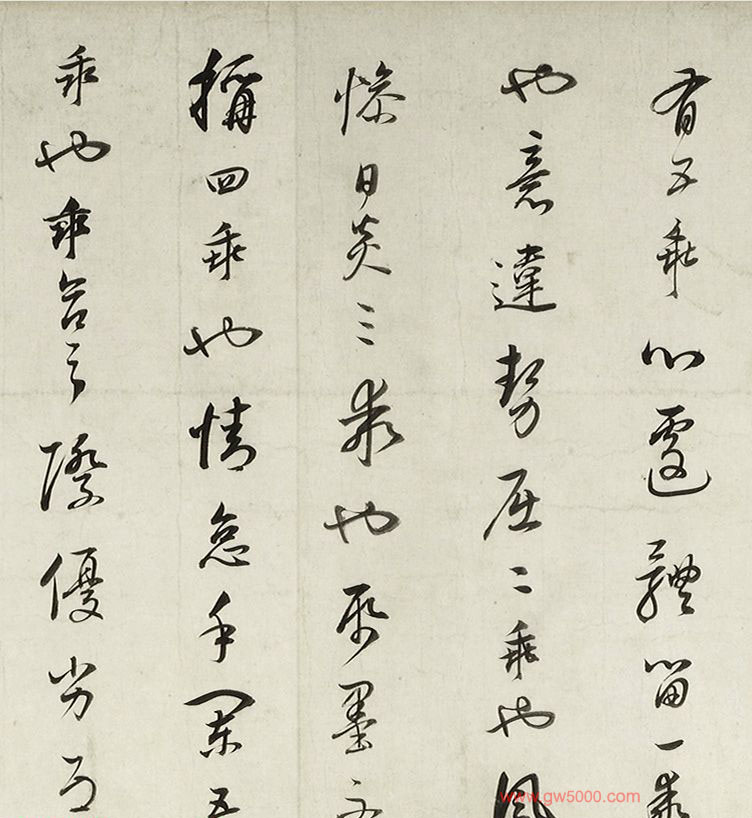 有五乖心遽體留一乖
也意違勢屈二乖也風
燥日炎三乖也紙墨不
稱四乖也情怠手闌五
乖也乖合之際優劣互
www.gw5000.com